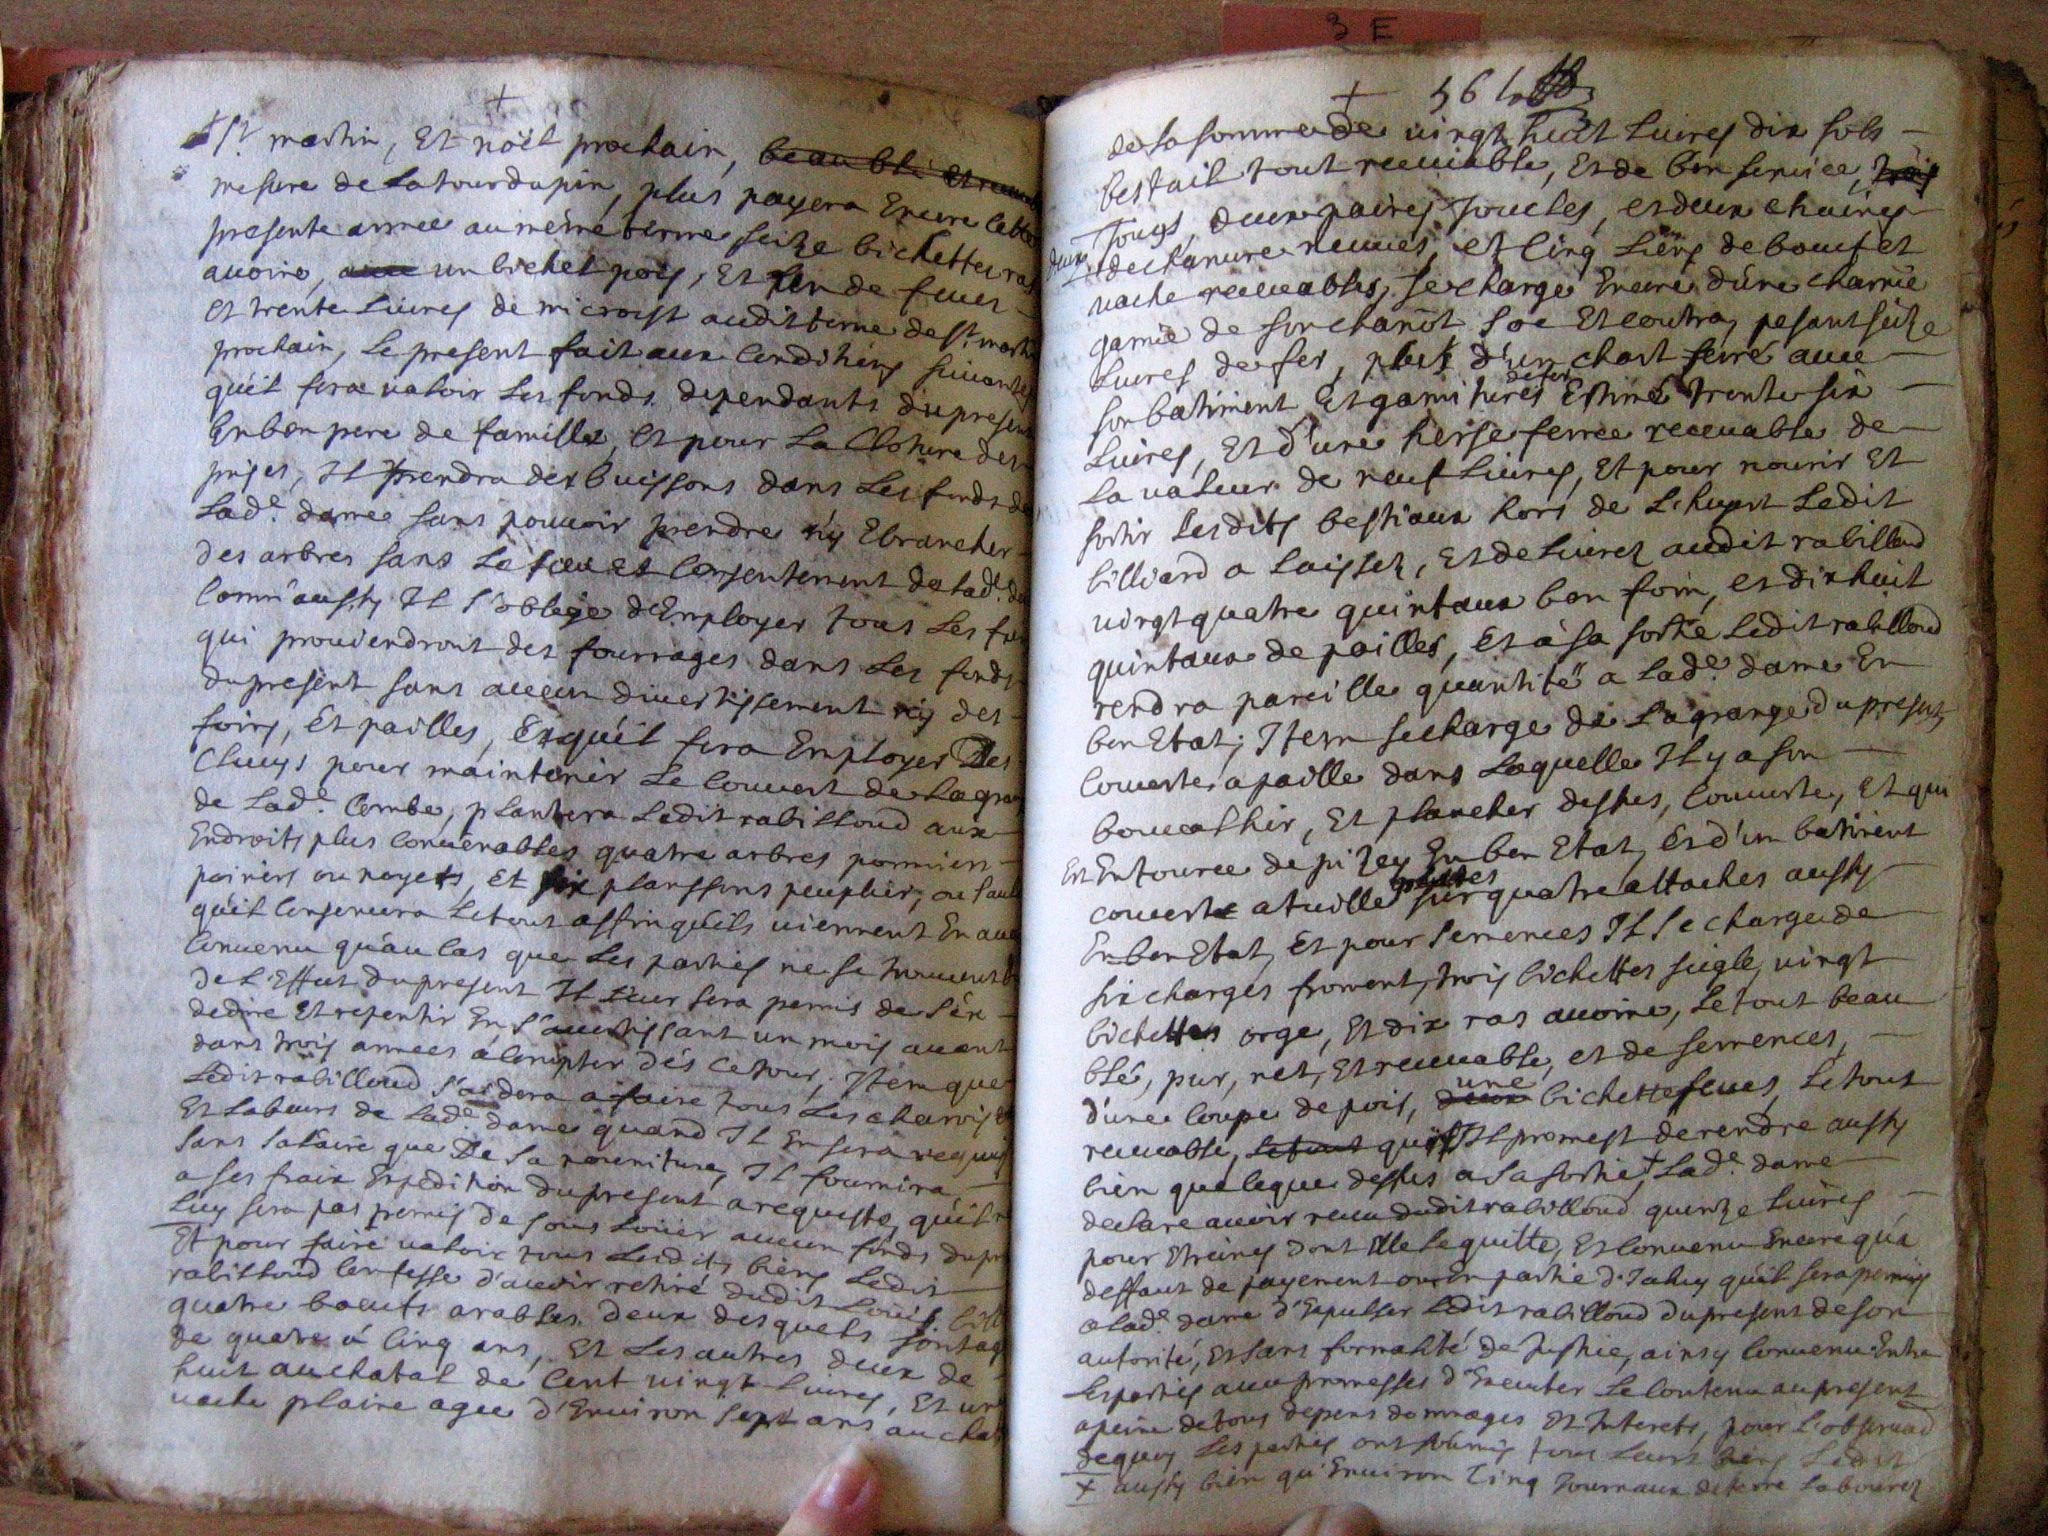 3 E
+
St martin, Et noël prochain, beau blé et recevable
mesure de Latourdupin, plus payera Encore Cette
presente année au même terme seize bichettes ras
avoine, un bichet pois, Et un de feves
Et trente Livres de audit terme de st martin
prochain, Le present fait aux Conditions suivantes
qu'il fera valoir Les fonds dependants du present
En bon pere de famille, et pour La Cloture des
prises, Il prendra des buissons dans Les fonds de
Lade. dame sans pouvoir prendre ny Ebrancher
des arbres sans Le sceu et Consentement de lade. da
Comm'aussy Il s'oblige d'Employer tous Les
qui proviendront des fourrages dans Les fonds
du present sans aucun divertissement ny des
foins, Et pailles, Et qu'il fera Employer Des
Cluys pour maintenir Le Couvert de La gran
de Lade. Combe, plantera Ledit rabilloud aux
Endroits plus Convenables quatre arbres pommiers
poiriers ou noyers, Et six planssons peuplier, ou saul
qu'il Conservera Le tout affin qu'ils viennent En
Convenu qu'au Cas que Les parties ne se trouvent
de L'Effet du present Il Leur sera permis de s'en
dedire Et repentir En s'avertissant un mois avant
dans trois années a Compter dés Ce jour, Item que
Ledit rabilloud s'aidera a faire tous Les charois
Et Labeurs de Lade. dame quand Il En sera requis
sans salaire que De sa nourriture, Il fournira
a ses fraix Expedition du present a requeste, qu'il
Luy sera pas permis de sous Louer aucun fonds du pr
Et pour faire valoir tous Lesdits biens Ledit
rabilloud Confesse d'avoir retiré dudit Louis bill
quatre boeufs arables, deux desquels sont ag
de quatre á Cinq ans, Et Les autres deux de
huit au chatal de Cent vingt Livres, Et une
vache plaine agee d'Environ sept ans au chat
+ 561
de La somme de vingt huit Livres dix sols
bestail tout recevable, Et de bon service, trois
Jougs, deux paires Joucles, et deux chaines
deux de chanvre neuves, et Cinq Liens de boeuf et
vache recevables, se charge Encore d'une charrue
garnie de son chariot soc Et coutra, pesant seize
Livres de fer, plus d'un chart ferré avec
son batiment Et garnitures de fer Estimé trente six
Livres, Et d'une herse ferree recevable de
La valeur de neuf Livres, Et pour nourir Et
sortir Lesdits bestiaux hors de L'hyvert Ledit
billiard a Laissez, Et de Livrez audit rabilloud
vingt quatre quintaux bon foin, et dixhuit
quintaux de pailles, Et à sa sortie Ledit rabilloud
rendra pareille quantité a Lade. dame En
bon Etat; Item se charge de La grange du present
Couverte a paille dans Laquelle Il y a son
Et plancher dessus, Couverte, Et qui
Est Entource de pizey En bon Etat, Et d'un batiment
couvert a tuilles sur quatre attaches aussy
En bon Etat, Et pour semences Il se charge de
six charges froment, trois bichettes seigle, vingt
bichettes orge, Et dix ras avoine, Le tout beau
blé, pur, net, Et recevable, et de semences,
d'une Coupe de pois, deux une bichette feves, Le tout
recevable, Le tout qu'il promest de rendre aussy
bien que Ce que dessus a sa sortie + Lade. dame
declare avoir receu dudit rabilloud quinze Livres
pour Etreines dont Elle Le quitte, Et Convenu Encore qu'a
deffaut de payement ou En partie d'Iceluy qu'il sera permis
a Lade. dame d'Expulser Ledit rabilloud du present de son
autorité, Et sans formalité de Justice, ainsy Convenu Entre
Les parties avec promesses d'Executer Le Contenu au present
a peine de tous depens dommages Et Interets, pour L'observa
de quoy Les parties ont soumis tous Leurs biens Ledit
+ aussy bien qu'Environ Cinq Journaux de terre Labourez